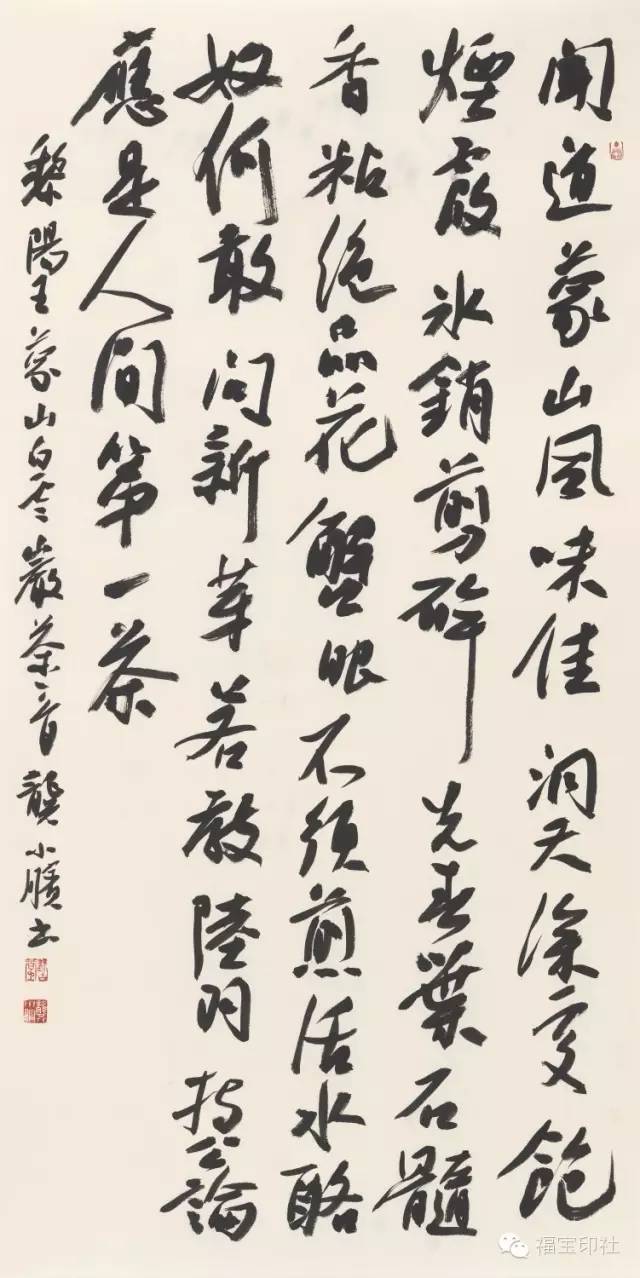 聞道蒙山風味佳洞天深處飽
煙霞冰銷剪碎先春葉石髓
香粘絕品花蟹眼不須煎活水酪
奴何敢問新芽若教陸羽持公論
應是人間第一茶
黎陽王蒙山白雲巖茶 龔小書
福宝印社